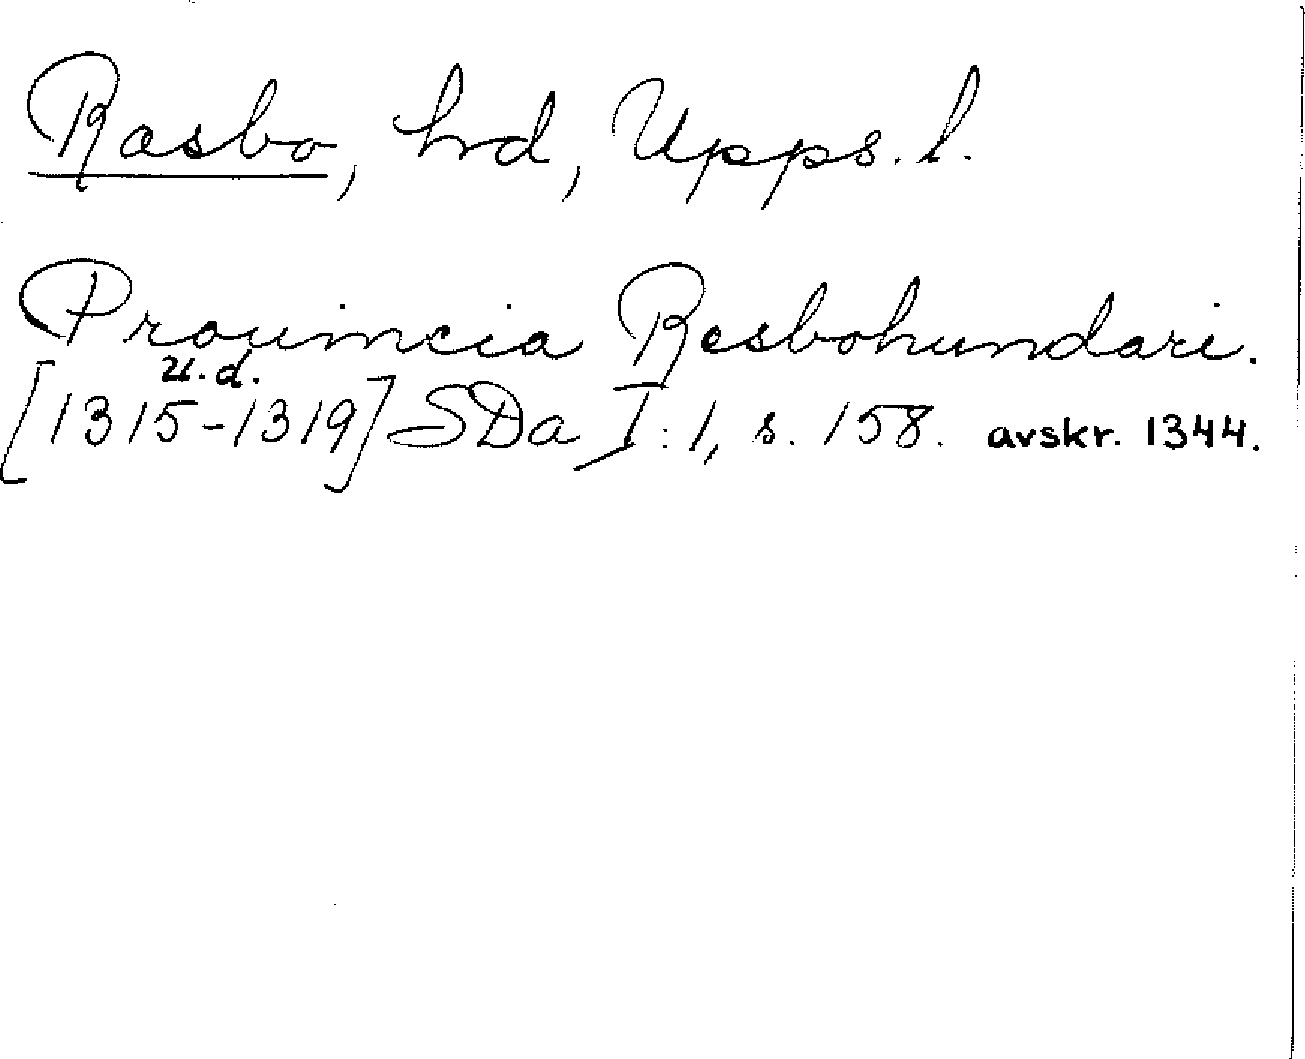 Rasbo, hrd, Upps. l.
Prouincia Resbohundari.
u.d.
[1315-1319] SDa I:1, s. 158. avskr. 1344.